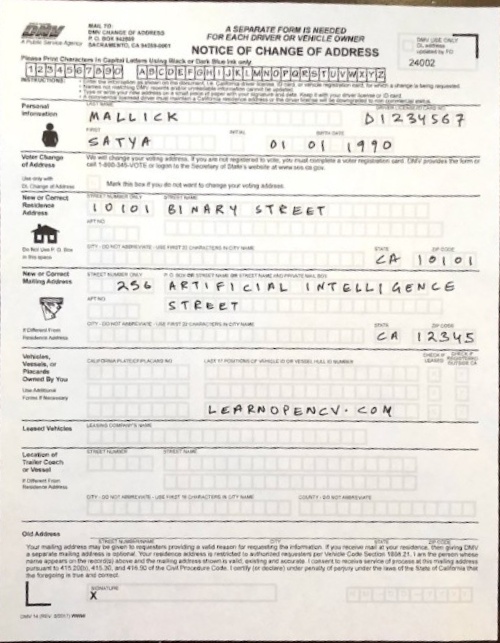 DMV
A Public Service Agency
MAIL TO:
DMV CHANGE OF ADDRESS
P. O. BOX 942859
SACRAMENTO, CA 94259-0001
A SEPARATE FORM IS NEEDED
FOR EACH DRIVER OR VEHICLE OWNER
NOTICE OF CHANGE OF ADDRESS
DMV USE ONLY
24002
Please Print Characters In Capital Letters Using Black or Dark Blue Ink only
1 2 3 4 5 6 7 8 9 0 A B C D E F G H I J K L M N O P Q R S T U V W X Y Z
INSTRUCTIONS:
Personal
Information
LAST NAME
MALLICK
D1234567
FIRST
INITIAL
BIRTH DATE
SATYA
01 01 1990
Voter Change
of Address
We will change your voting address. If you are not registered to vote, you must complete a voter registration card. DMV provides the form or
call 1-800-345-VOTE or login to the Secretary of State's website at www.sos.ca.gov.
Use only with
DL Change of Address
Mark this box if you do not want to change your voting address.
New or Correct
Residence
Address
STREET NUMBER ONLY
STREET NAME
10101 BINARY STREET
APT NO
Do Not Use P. O. Box
in this space
CITY - DO NOT ABBREVIATE - USE FIRST 22 CHARACTERS IN CITY NAME
STATE
ZIP CODE
CA 10101
New or Correct
Mailing Address
STREET NUMBER ONLY
P. O. BOX OR STREET NAME OR STREET NAME AND PRIVATE MAIL BOX
256 ARTIFICIAL INTELLIGENCE
APT NO
STREET
If Different From
Residence Address
CITY - DO NOT ABBREVIATE - USE FIRST 22 CHARACTERS IN CITY NAME
STATE
ZIP CODE
CA 12345
Vehicles,
Vessels, or
Placards
Owned By You
CALIFORNIA PLATE/CF/PLACARD NO
LAST 17 POSITIONS OF VEHICLE ID OR VESSEL HULL ID NUMBER
CHECK IF
LEASED
CHECK IF
REGISTERED
OUTSIDE CA
Use Additional
Forms If Necessary
LEARNOPENCV.COM
Leased Vehicles
LEASING COMPANY'S NAME
Location of
Trailer Coach
or Vessel
STREET NUMBER
STREET NAME
If Different From
Residence Address
CITY - DO NOT ABBREVIATE - USE FIRST 18 CHARACTERS IN CITY NAME
COUNTY - DO NOT ABBREVIATE
Old Address
STREET NUMBER/NAME
CITY
STATE
ZIP CODE
Your mailing address may be given to requesters providing a valid reason for requesting the information. If you receive mail at your residence, then giving DMV
a separate mailing address is optional. Your residence address is restricted to authorized requesters per Vehicle Code Section 1808.21. I am the person whose
name appears on the record(s) above and the mailing address shown is valid, existing and accurate. I consent to service of process at this mailing address
pursuant to 415.20(b), 415.30, and 416.90 of the Civil Procedure Code. I certify (or declare) under penalty of perjury under the laws of the State of California that
the foregoing is true and correct.
SIGNATURE
X